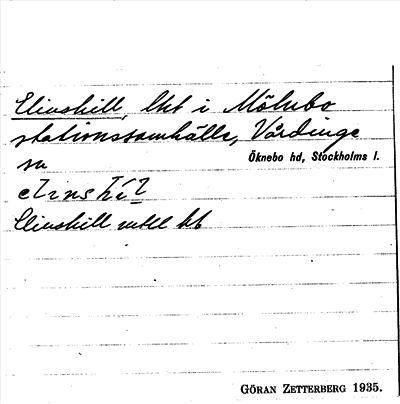 Elinshill, lht i Mölnbo
stationssamhälle, Vårdinge
sn Öknebo hd, Stockholms l.
Elinshill
GÖRAN ZETTERBERG 1935.